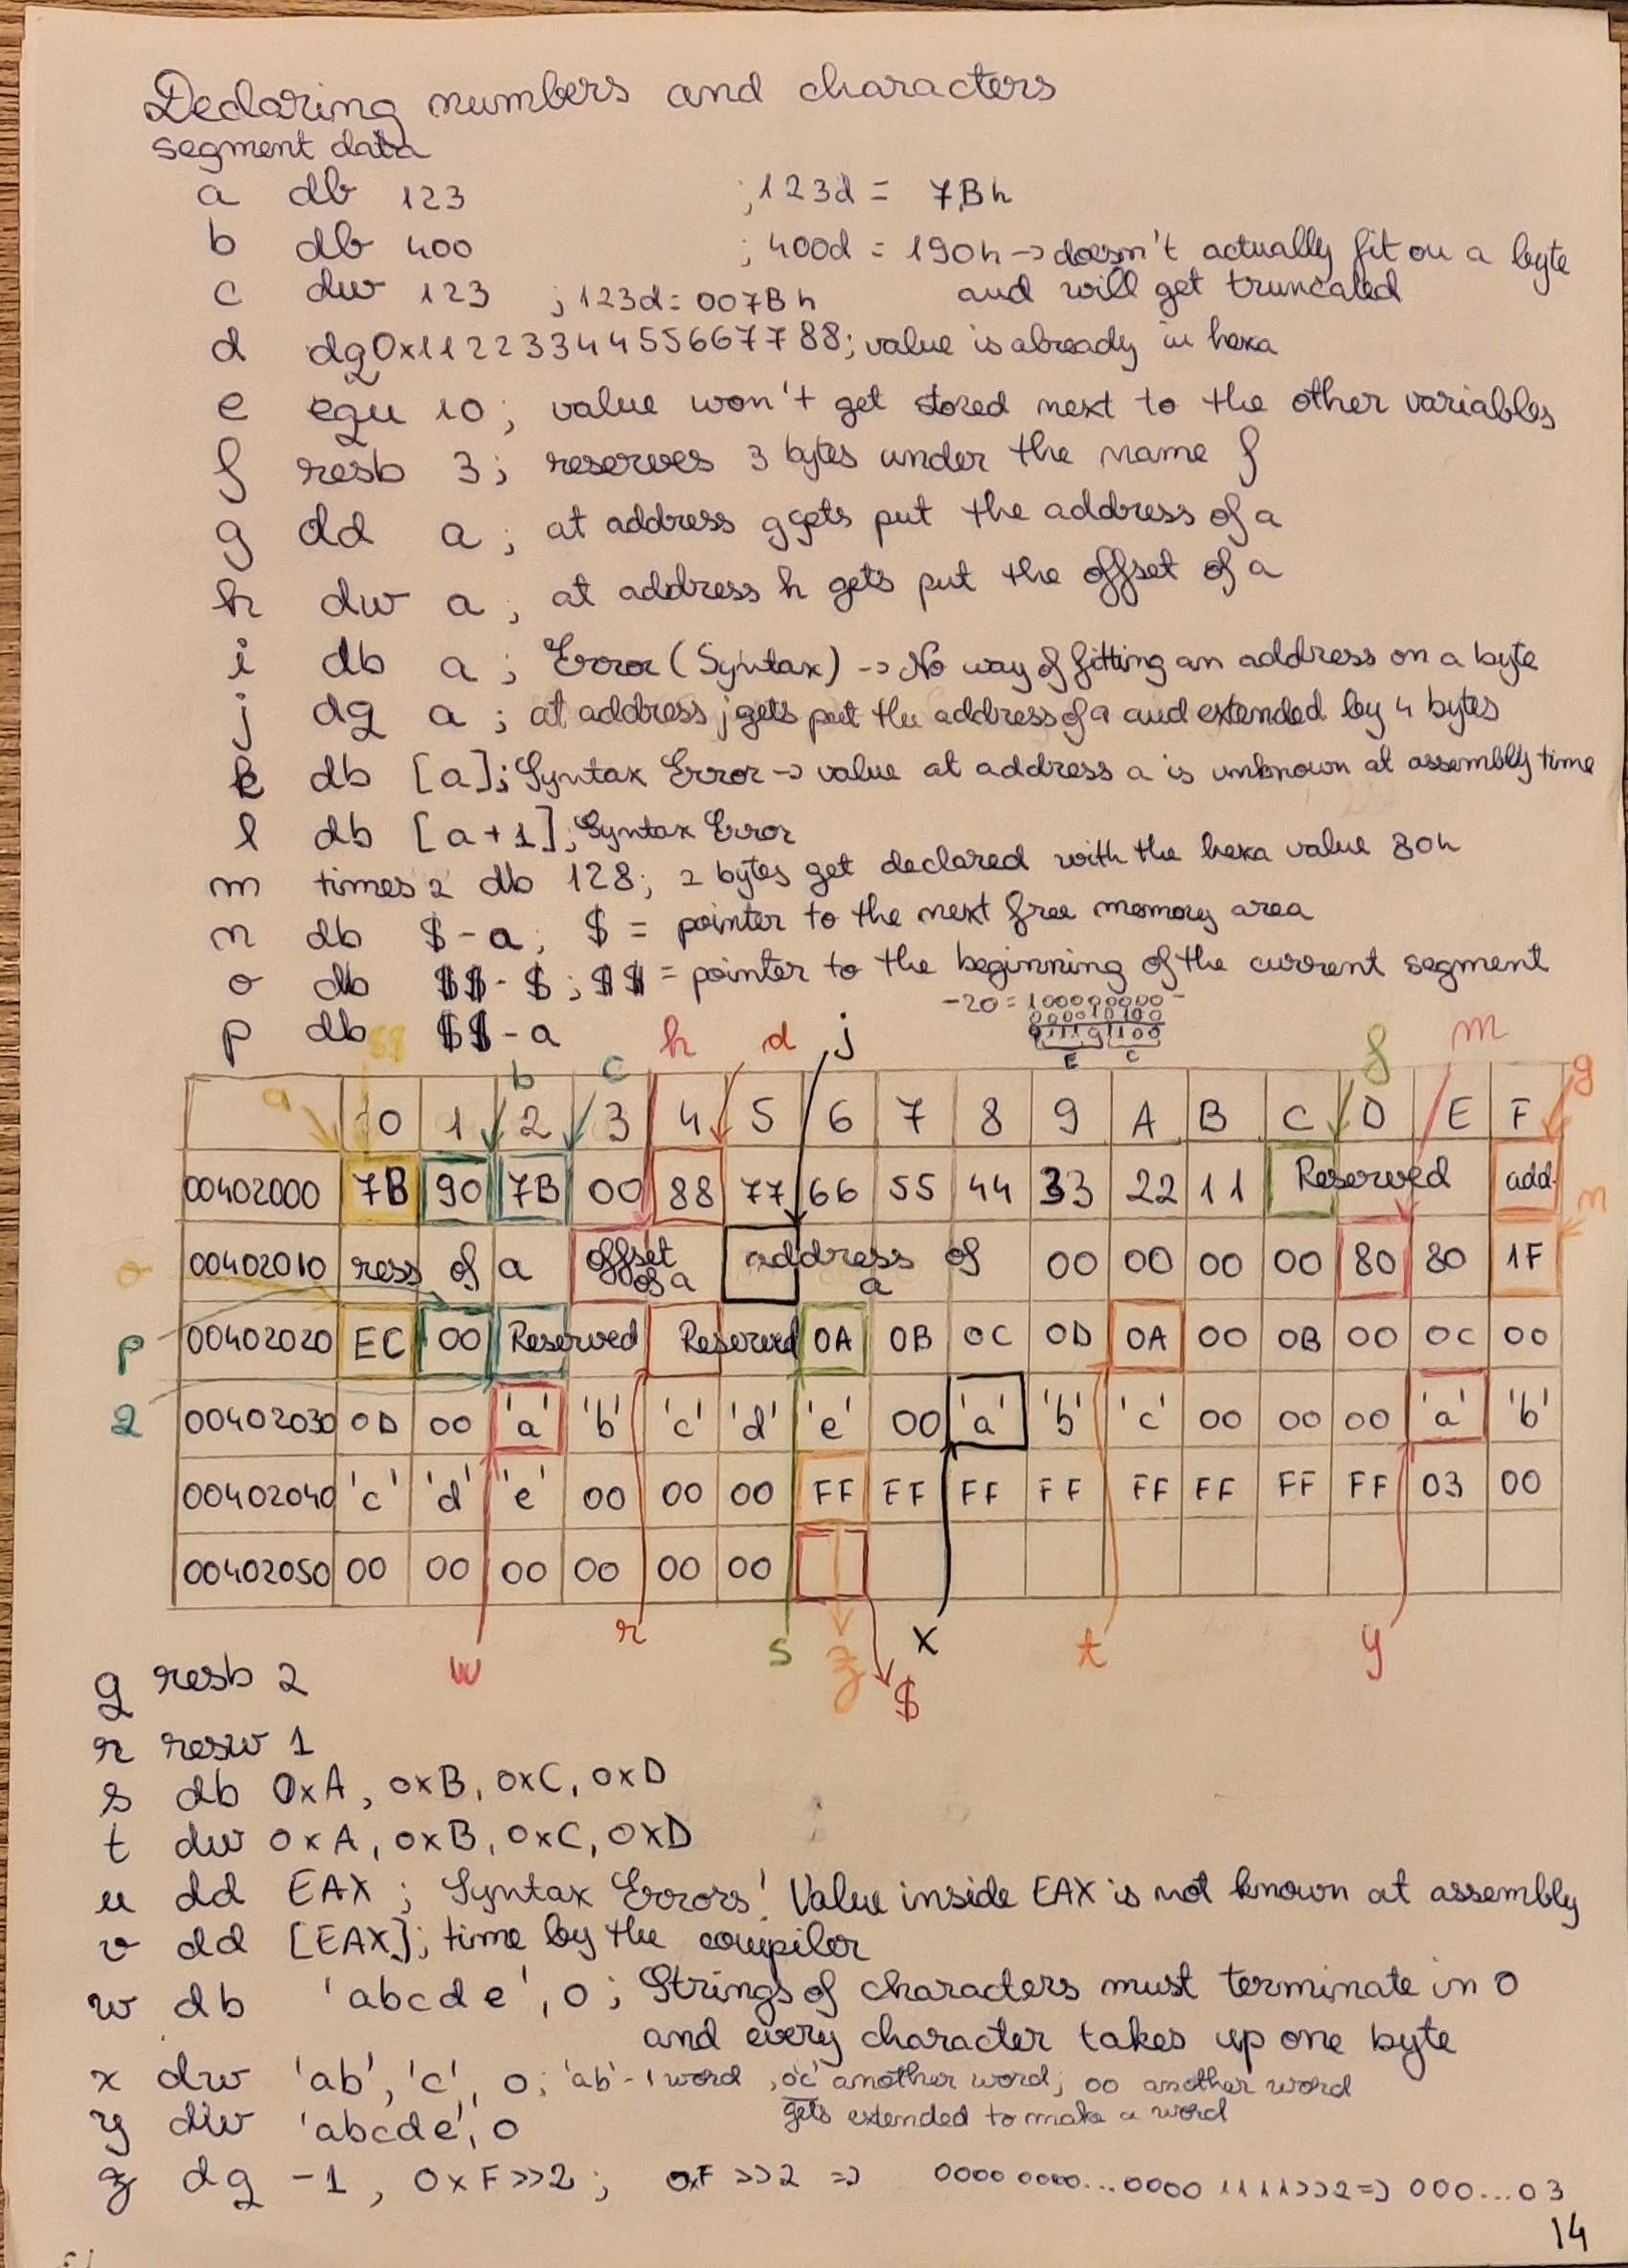 Declaring numbers and characters
segment data
a db 123 ; 123d = 7Bh
b db 400 ; 400d = 190h -> doesn't actually fit on a byte
c dw 123 ; 123d = 007Bh and will get truncated
d dq 0x1122334455667788; value is already in hexa
e equ 10; value won't get stored next to the other variables
f resb 3; reserves 3 bytes under the name f
g dd a; at address g gets put the address of a
h dw a; at address h gets put the offset of a
i db a; Error (Syntax) -> No way of fitting an address on a byte
j dq a; at address j gets put the address of a and extended by 4 bytes
k db [a]; Syntax Error -> value at address a is unknown at assembly time
l db [a+1]; Syntax Error
m times 2 db 128; 2 bytes get declared with the hexa value 80h
n db $-a; $ = pointer to the next free memory area
o db $$-$; $$ = pointer to the beginning of the current segment
-20 = 100000000 -
00010100
p db $$-a
11101100
E C
$$ h d j f m g
a b c
0 1 2 3 4 5 6 7 8 9 A B C D E F
00402000 7B 90 7B 00 88 77 66 55 44 33 22 11 Reserved add-
n
o 00402010 ress of a offset of a address of a 00 00 00 00 80 80 1F
p 00402020 EC 00 Reserved Reserved 0A 0B 0C 0D 0A 00 0B 00 0C 00
q 00402030 0D 00 'a' 'b' 'c' 'd' 'e' 00 'a' 'b' 'c' 00 00 00 'a' 'b'
00402040 'c' 'd' 'e' 00 00 00 FF FF FF FF FF FF FF FF 03 00
00402050 00 00 00 00 00 00
w r s z $ x t y
q resb 2
r resw 1
s db 0xA, 0xB, 0xC, 0xD
t dw 0xA, 0xB, 0xC, 0xD
u dd EAX ; Syntax Errors! Value inside EAX is not known at assembly
v dd [EAX]; time by the compiler
w db 'abcde', 0; Strings of characters must terminate in 0
and every character takes up one byte
x dw 'ab', 'c', 0; 'ab' - 1 word, 0'c' another word; 00 another word
gets extended to make a word
y dw 'abcde', 0
z dq -1, 0xF>>2; 0xF >>2 => 0000 0000...0000 1111>>2 => 000...03
14